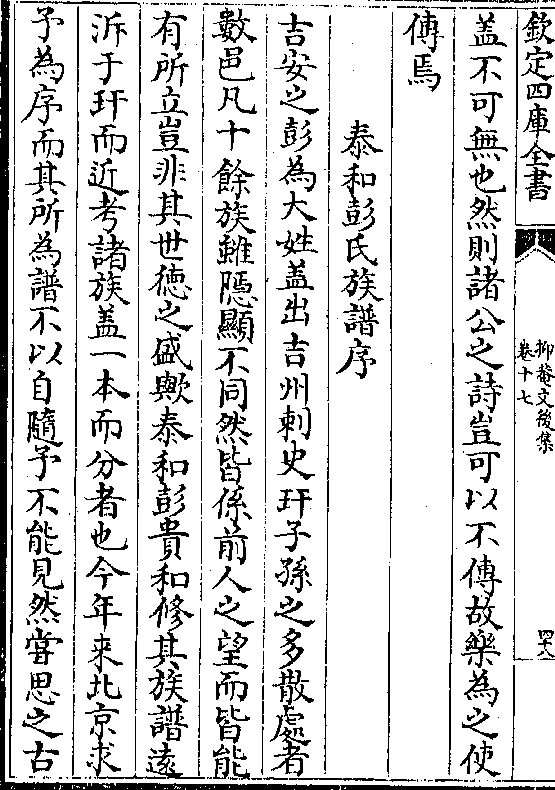 欽定四庫全書
抑菴文後集
卷十七
四十八
蓋不可無也然則諸公之詩豈可以不傳故樂為之使
傳焉
泰和彭氏族譜序
吉安之彭為大姓蓋出吉州刺史玕子孫之多散處者
數邑凡十餘族雖隱顯不同然皆係前人之望而皆能
有所立豈非其世德之盛歟泰和彭貴和修其族譜遠
泝于玕而近考諸族蓋一本而分者也今年來北京求
予為序而其所為譜不以自隨予不能見然嘗思之古